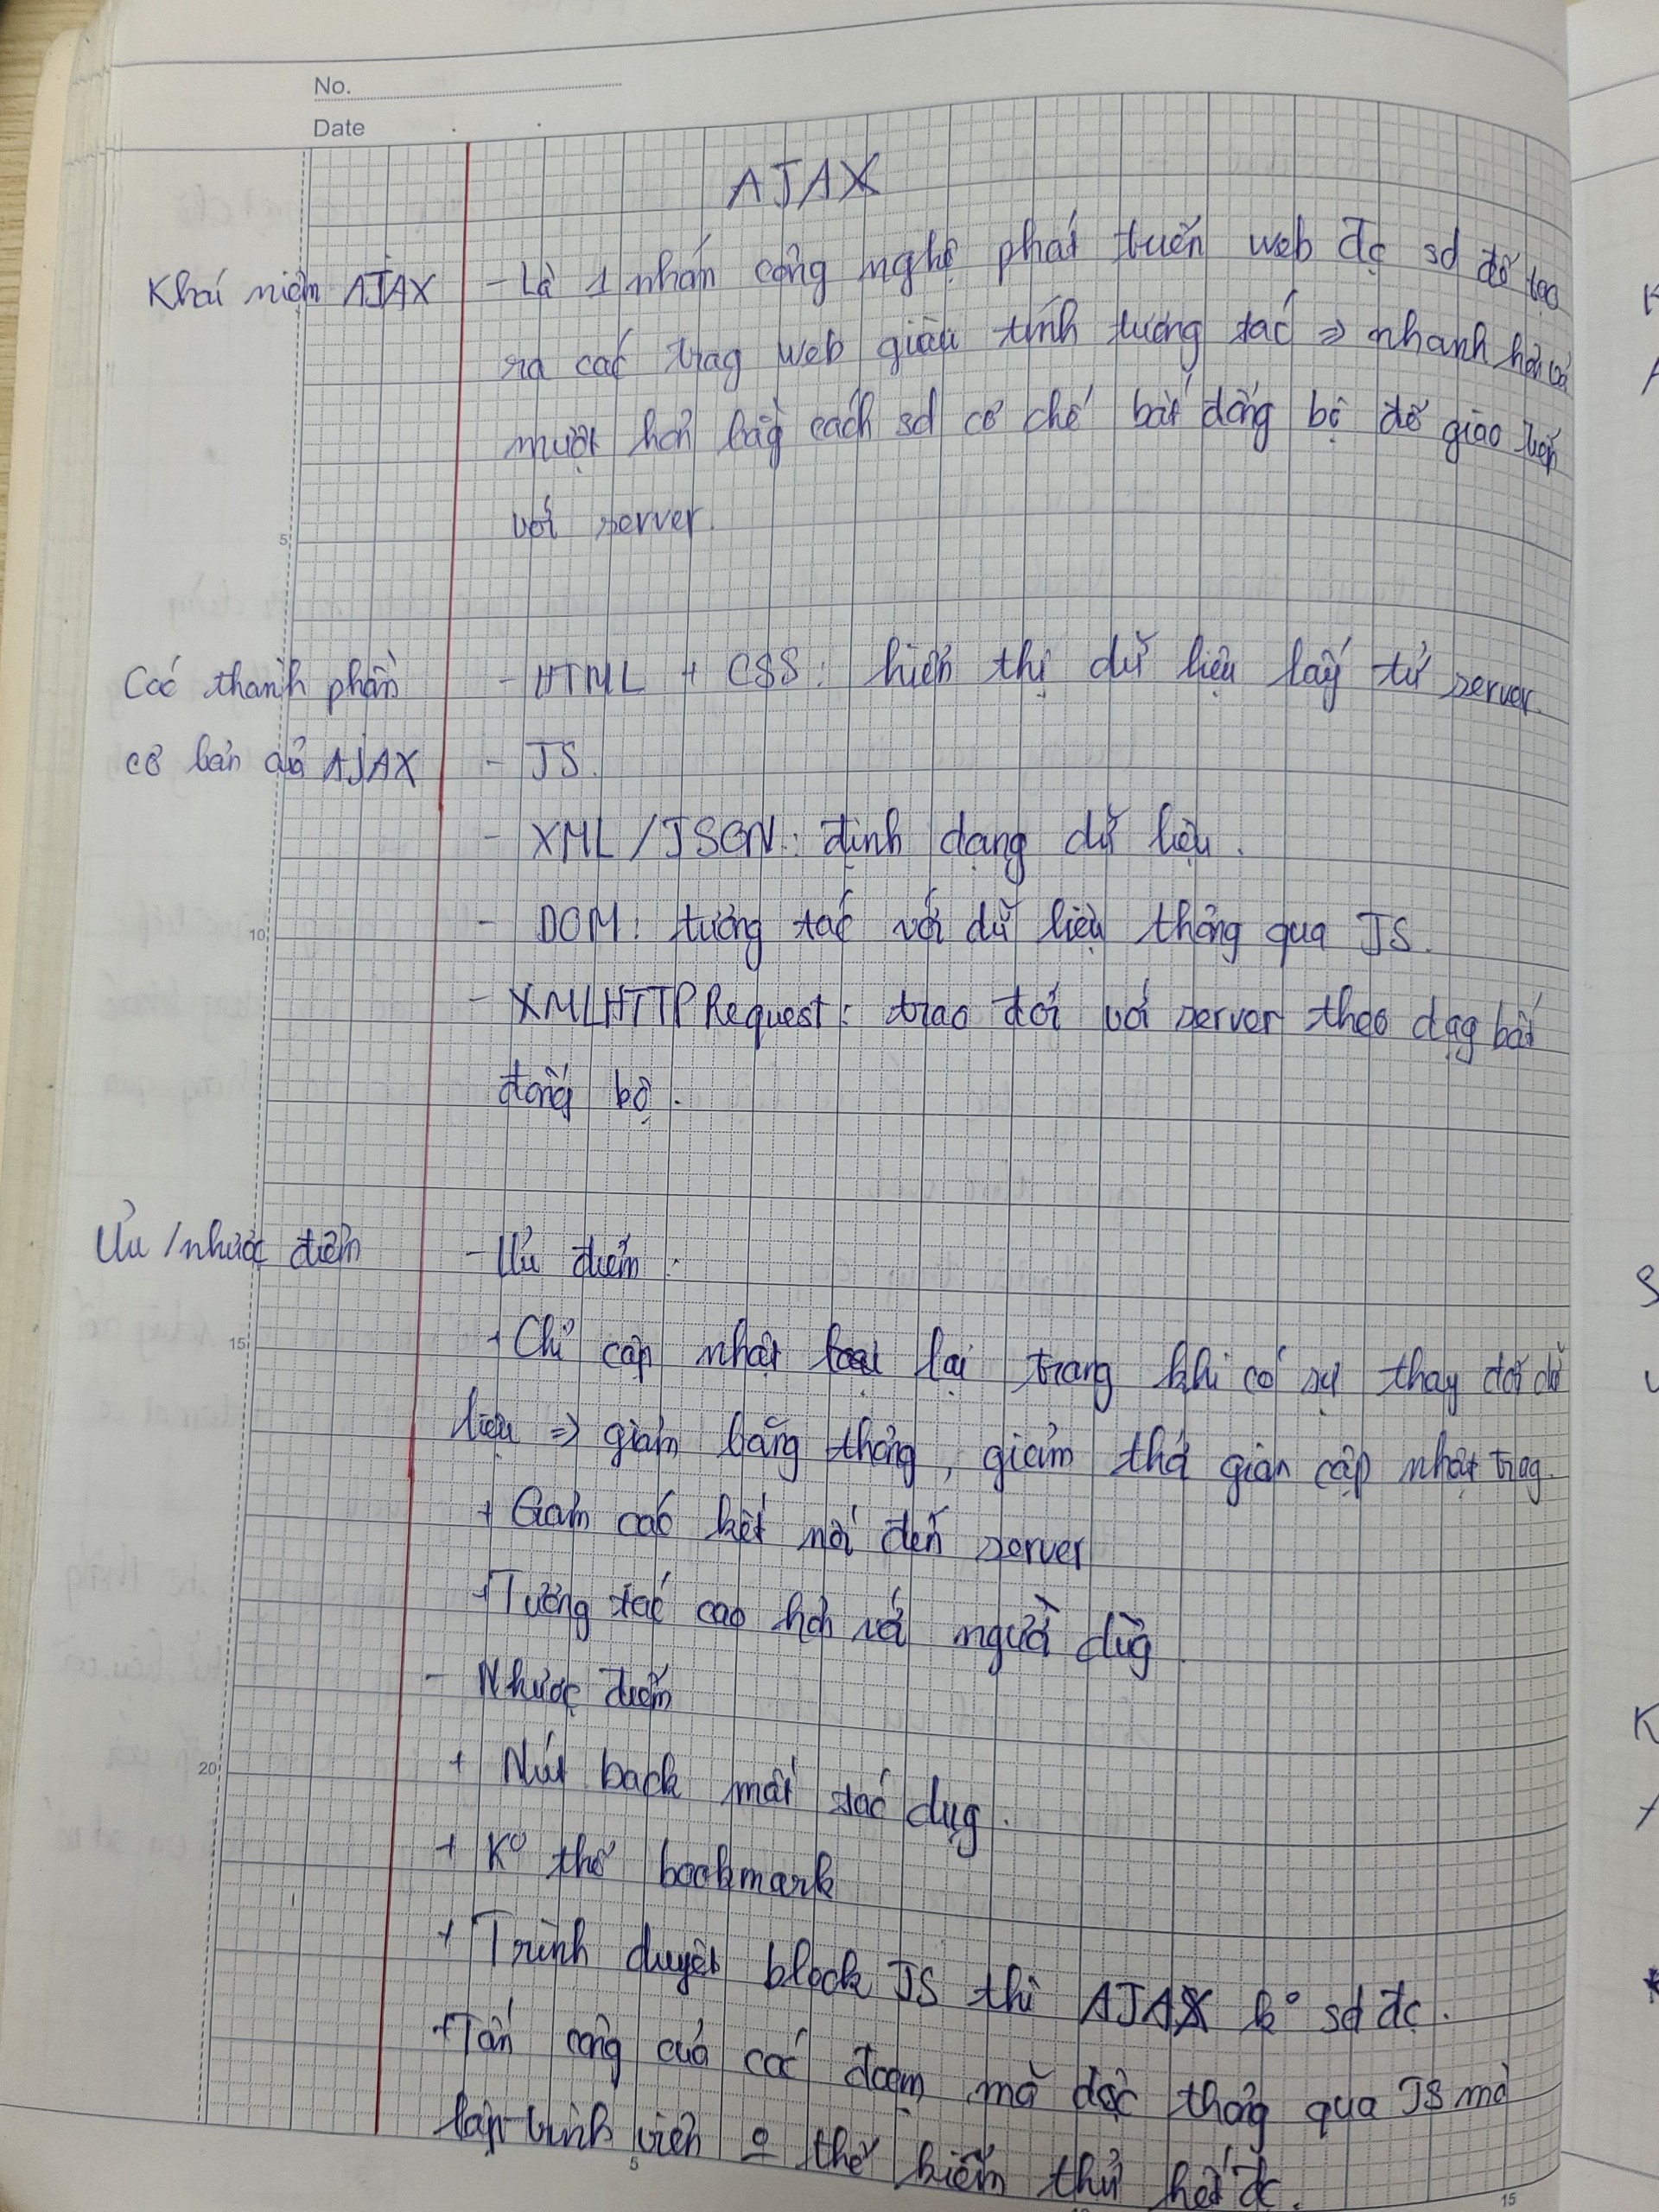 No.
Date
AJAX
Khái niệm AJAX - Là 1 nhóm công nghệ phát triển web đc sd để tạo
ra các trag web giàu tính tương tác => nhanh hơn và
mượt hơn bằg cách sd cơ chế bất đồng bộ để giao tiếp
với server.
5
Các thành phần - HTML + CSS: hiển thị dữ liệu lấy từ server.
cơ bản của AJAX - JS.
- XML/JSON: định dạng dữ liệu.
10 - DOM: tương tác với dữ liệu thông qua JS.
- XMLHTTPRequest: trao đổi với server theo dạg bất
đồng bộ.
Ưu/nhược điểm - Ưu điểm:
15 + Chỉ cập nhật lại trang khi có sự thay đổi dữ
liệu => giảm băng thông, giảm thời gian cập nhật trag.
+ Giảm các kết nối đến server
+ Tương tác cao hơn với người dùg
- Nhược điểm
20 + Nút back mất tác dụg.
+ K° thể bookmark
+ Trình duyệt block JS thì AJAX k° sd đc.
+ Tấn công của các đoạn mã độc thông qua JS mà
lập trình viên o thể kiểm thử hết đc.
5
15